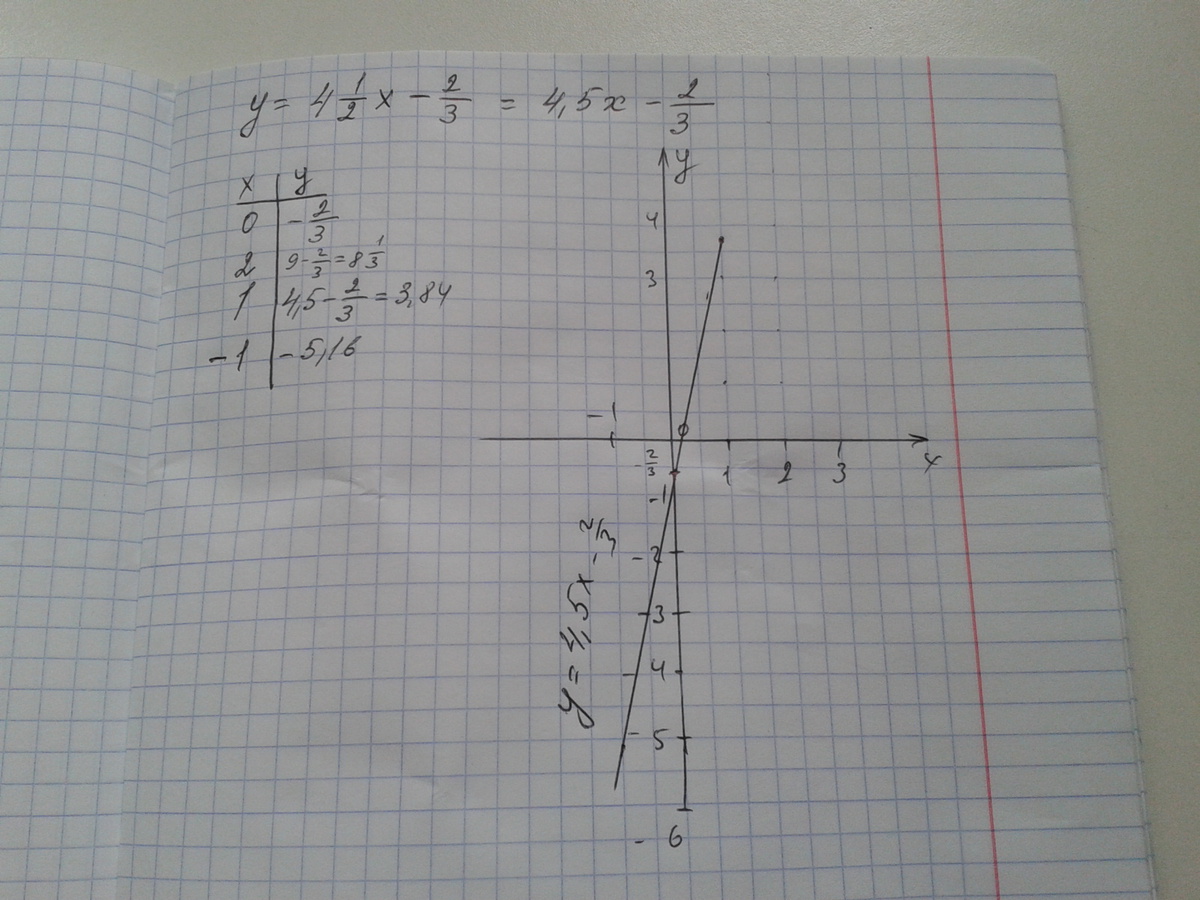 y = 4 1/2 x - 2/3 = 4,5x - 2/3
x y
0 -2/3
2 9 - 2/3 = 8 1/3
1 4,5 - 2/3 = 3,84
-1 -5,16
y
4
3
-1
0
-2/3
1 2 3 x
-1
-2
-3
4
-5
- 6
y = 4,5x - 2/3